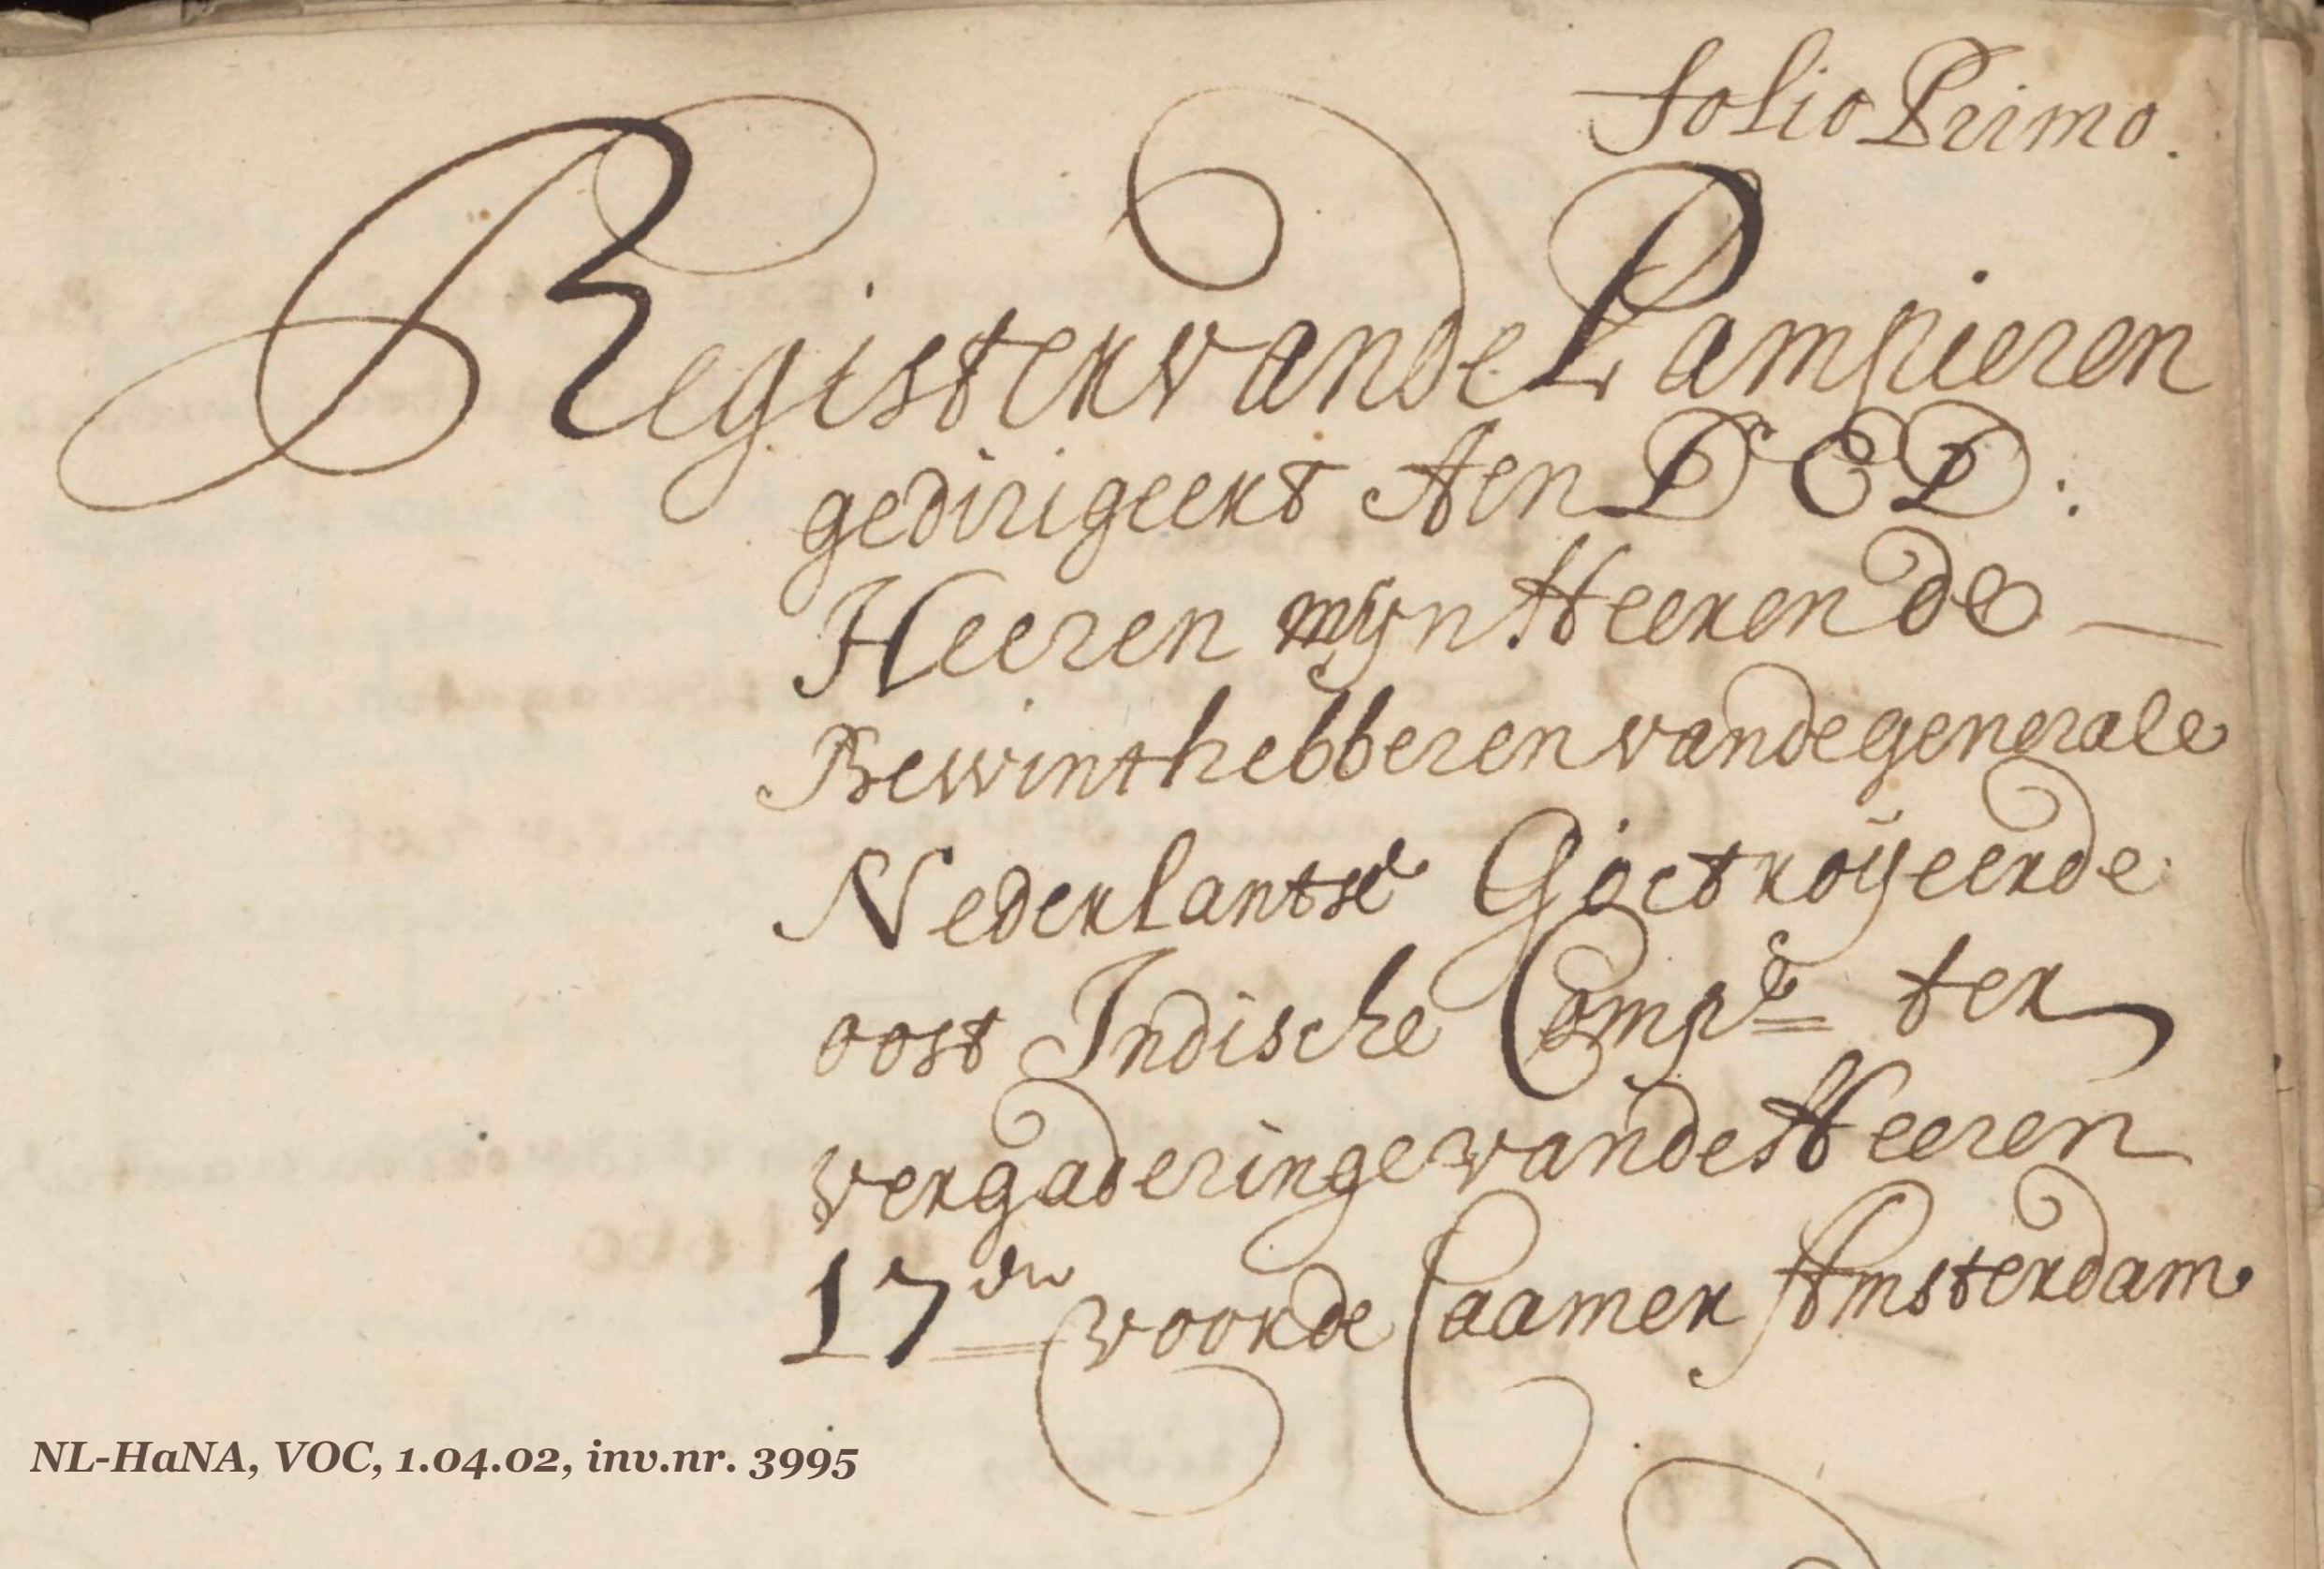 folio Primo.
Register vande Pampieren
gedirigeert Aen D' E D:
Heeren mijn Heeren de
Bewinthebberen vande generale
Nederlantse Gioctroijeerde
oost Indische Compe ter
vergaderinge vande Heeren
17en voor de Caamer Amsterdam
NL-HaNA, VOC, 1.04.02, inv.nr. 3995